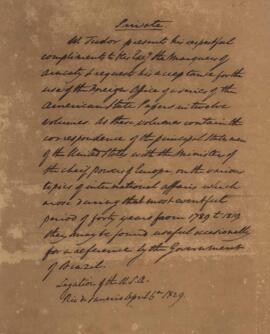 Private
Mr Tudor present his respectful
compliments to his Exy the Marquess of
Aracaty & request his acceptance for the
use of the Foreign Office of a series of the
American State Papers in twelve
volumes. As these volumes contain the
correspondence of the principal Statesmen
of the United States with the Ministers of
the chief powers of Europe on the various
topics of international affairs which
arose during that most eventful
period of forty years from 1789 to 1819
they may be found useful occasionally
for a reference by the Government
of Brazil.
Legation of the U.S.A.
Rio de Janeiro April 6th 1829.